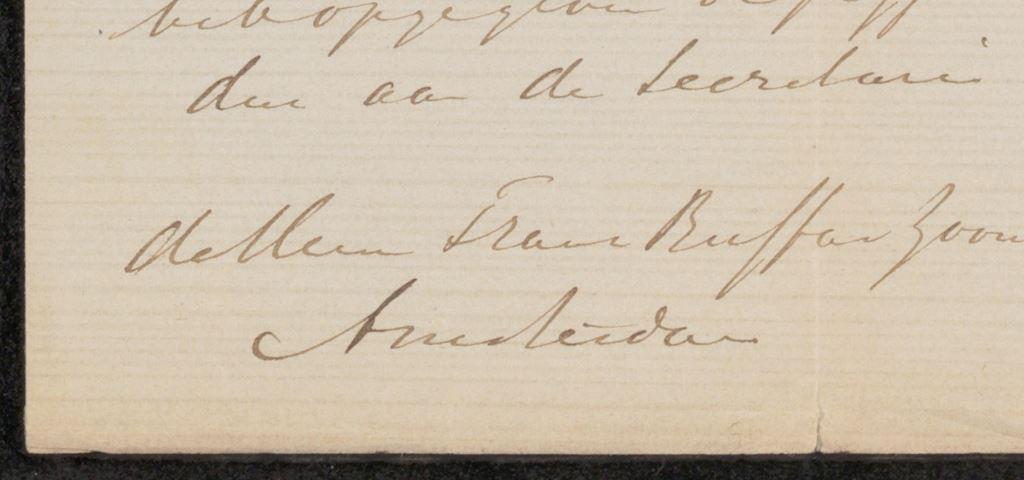 heb opgegeven
den aan de Secretaris
de Heeren Frans Buffa en Zoon
Amsterdam